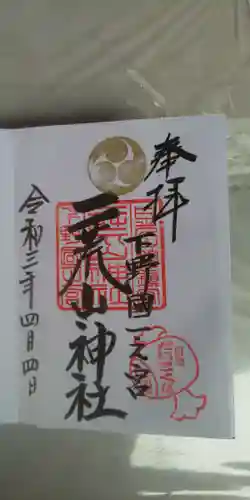 奉拝
下野國一之宮
二荒山神社
令和三年四月四日